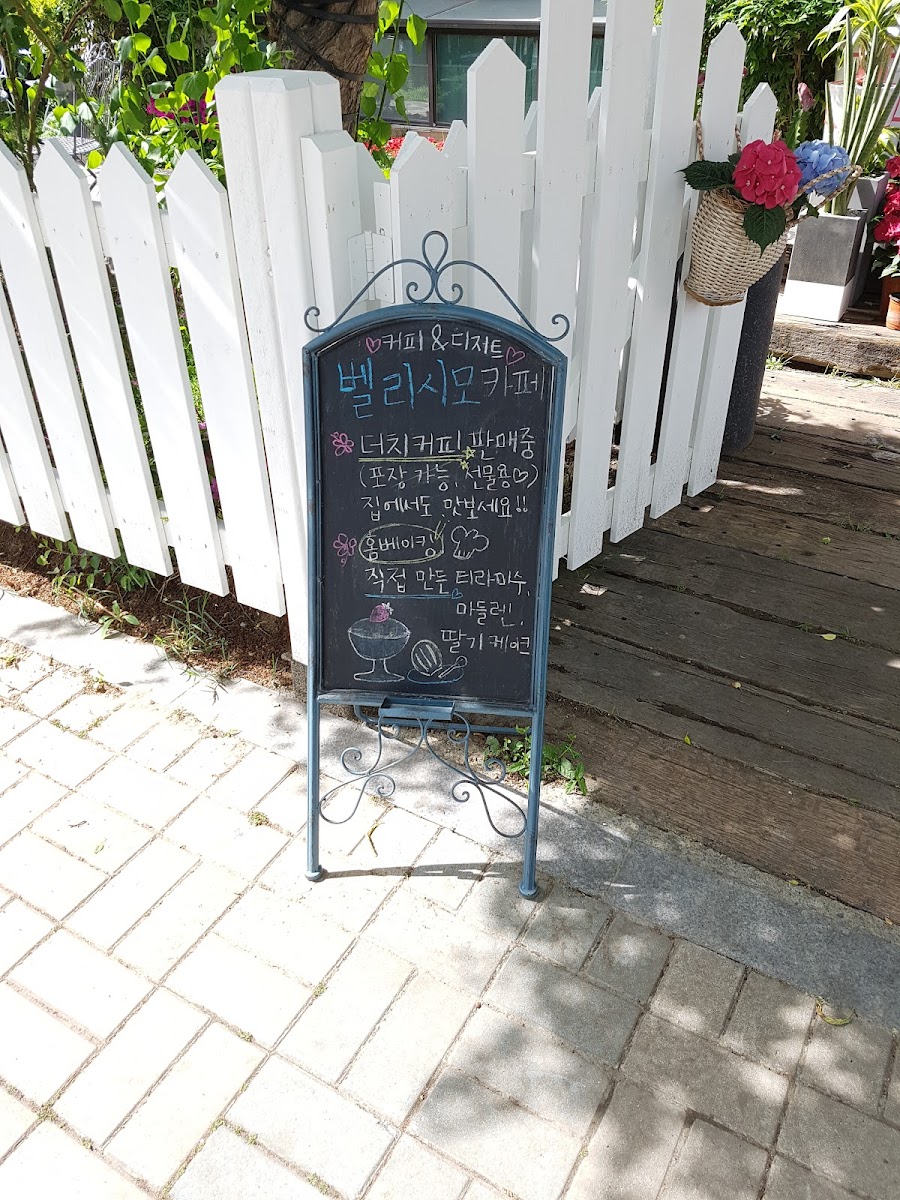 커피 & 디저트
벨리시모카페
더치커피 판매중
(포장 가능, 선물용♡)
집에서도 맛보세요!!
홈베이킹
직접 만든 티라미수,
마들렌,
딸기케이크